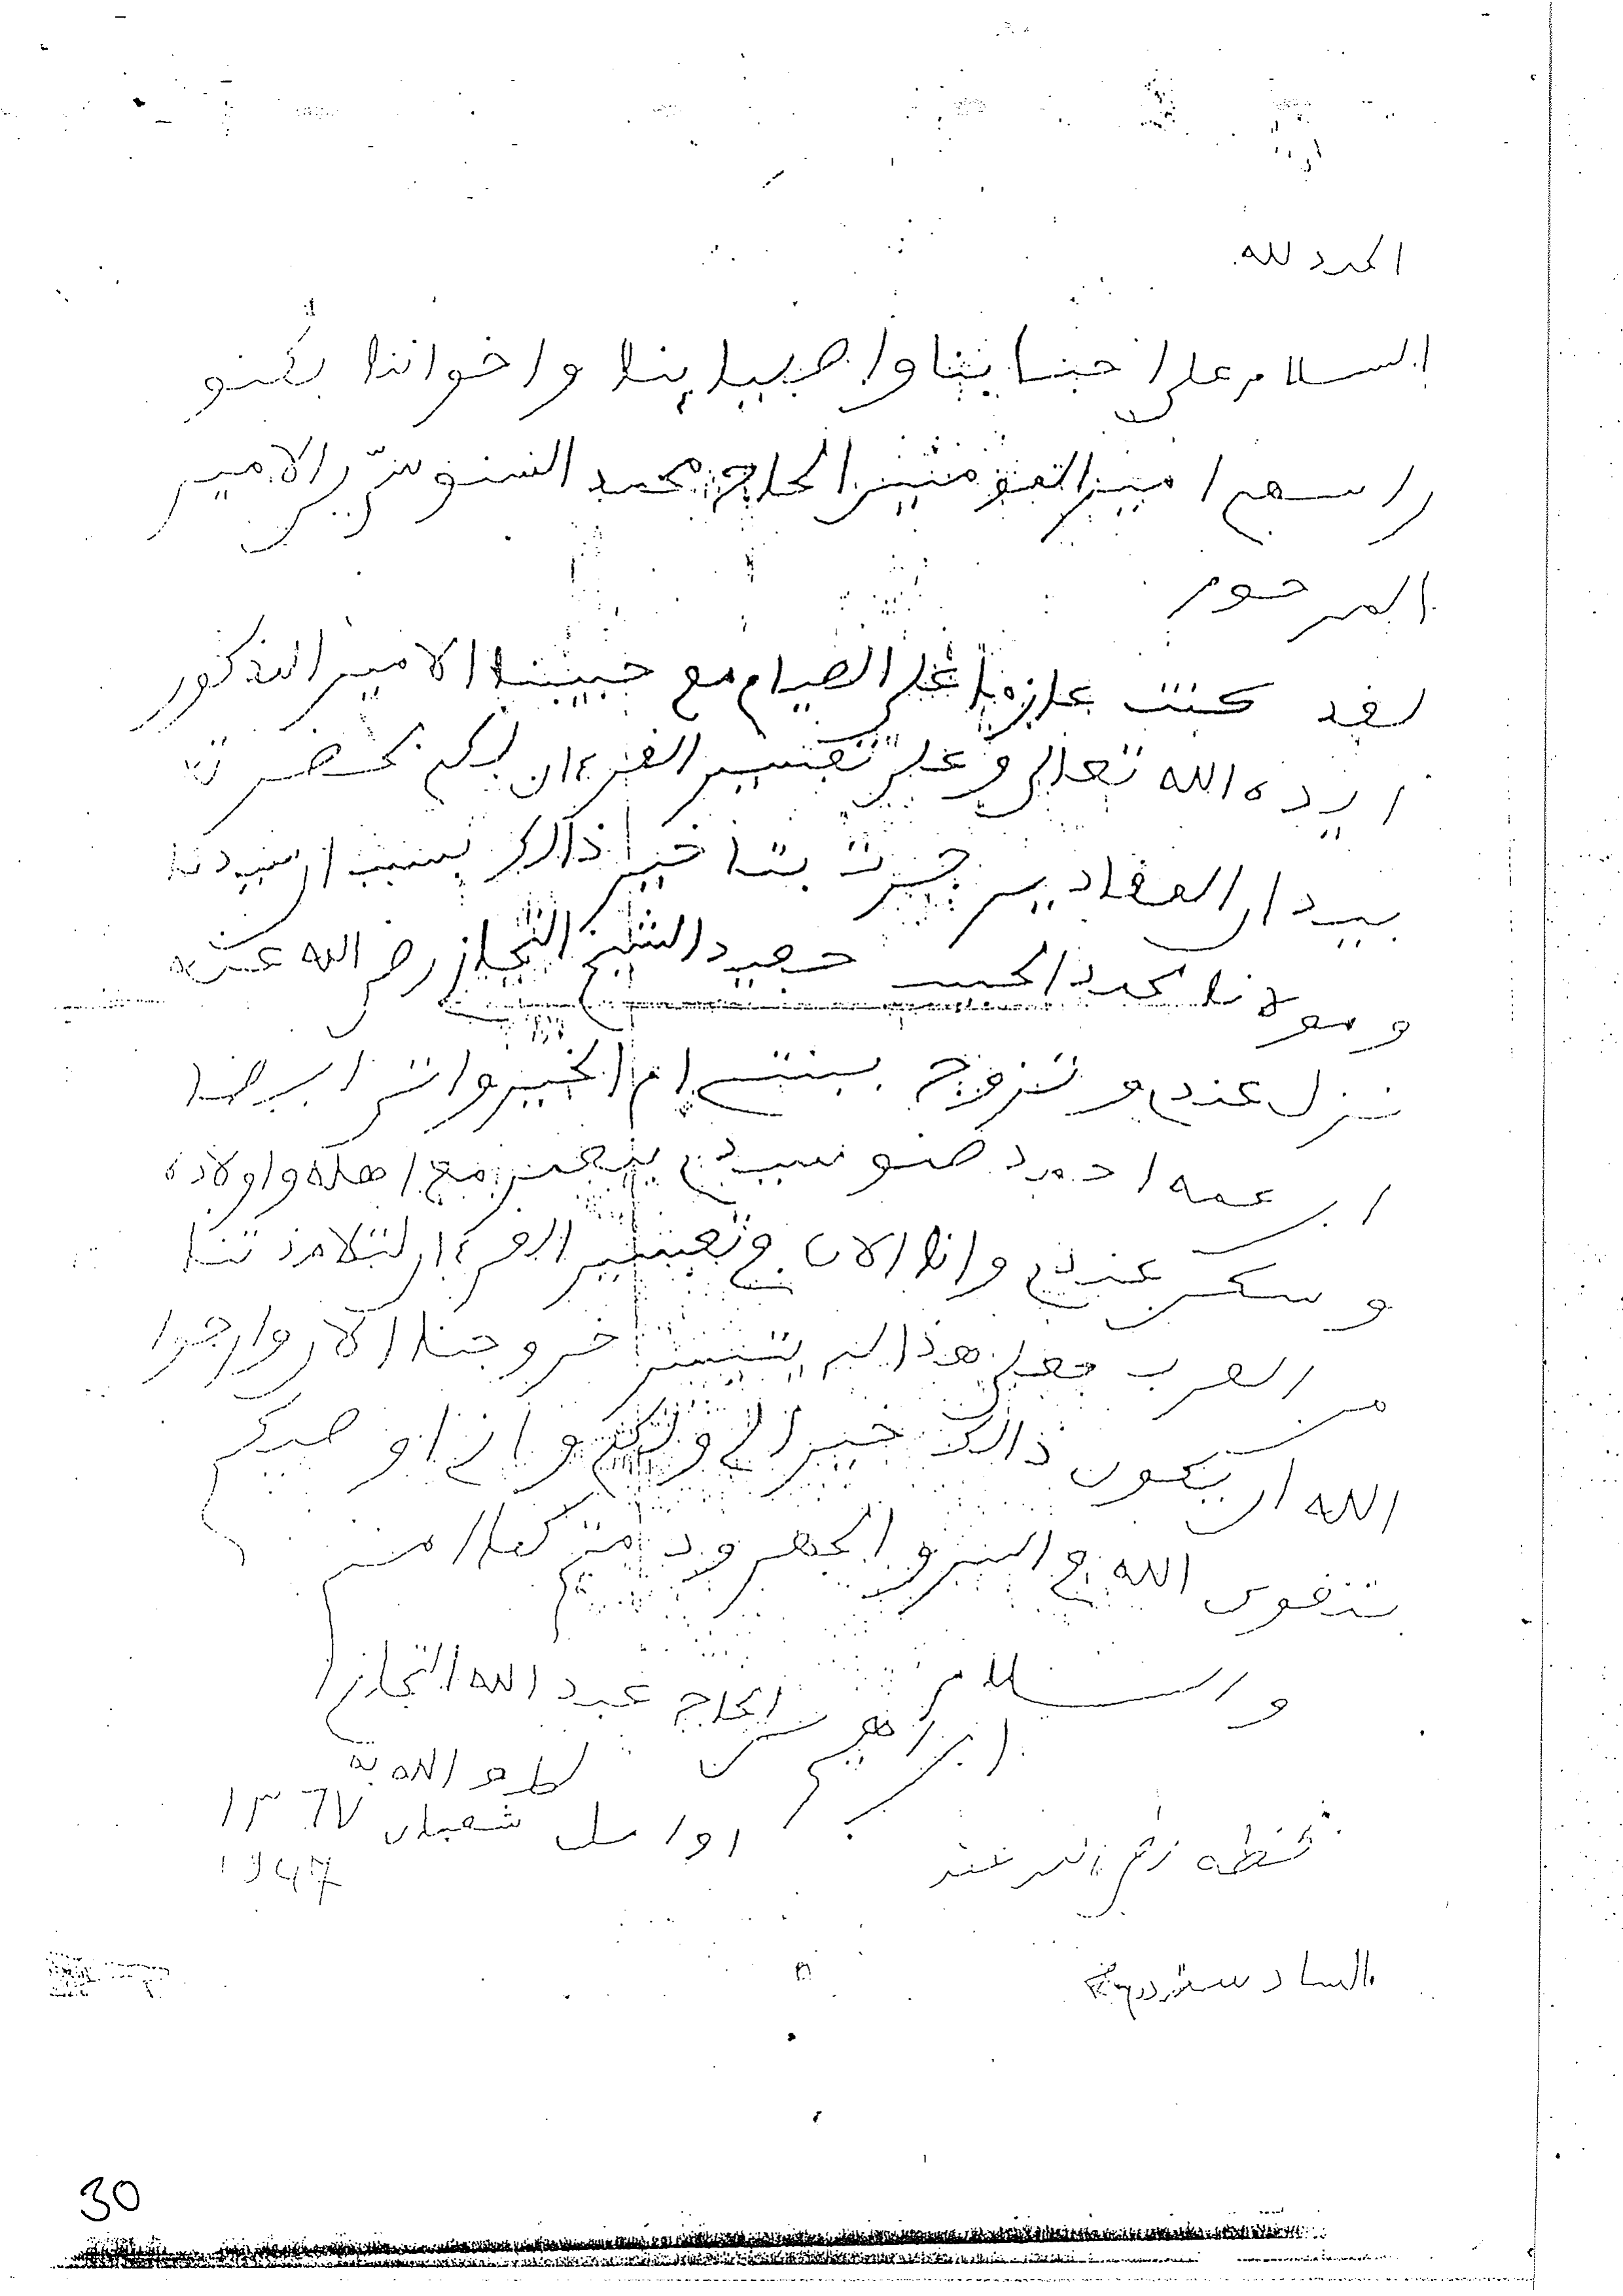 الحمد لله
السلام على احبابنا واحبيابنا واخواننا بكنو
راسهم امير المؤمنين الحاج محمد السنوسي الامير
المرحوم
لقد كنت عازما على الصيام مع حبيبنا الامير المذكور
ايده الله تعالى وعلى تفسير القرءان لكم بحضرته
بيد ان المقادير جرت بتاخير ذالك بسبب ان سيدنا
ومولانا محمد الحسن حفيد الشيخ التجاني رضي الله عنه
نزل عندي وتزوج ببنتي ام الخير واتى ايضا
ابن عمه احمد صنو سيدي بنعمر مع اهله واولاده
وسكن عندي وانا الان في تفسير القرءان لتلامذتنا
من العرب فعلى هذا لم يتيسر خروجنا الان وارجوا
الله ان يكون ذالك خيرا لي ولكم واني اوصيكم
بتقوى الله في السر والجهر ودمتم كما امنتم
والسلام
ابراهيم بن الحاج عبد الله التجاني
لطف الله به
اوائل شعبان ١٣٦٧
1947
بخطه رضي الله عنه
30